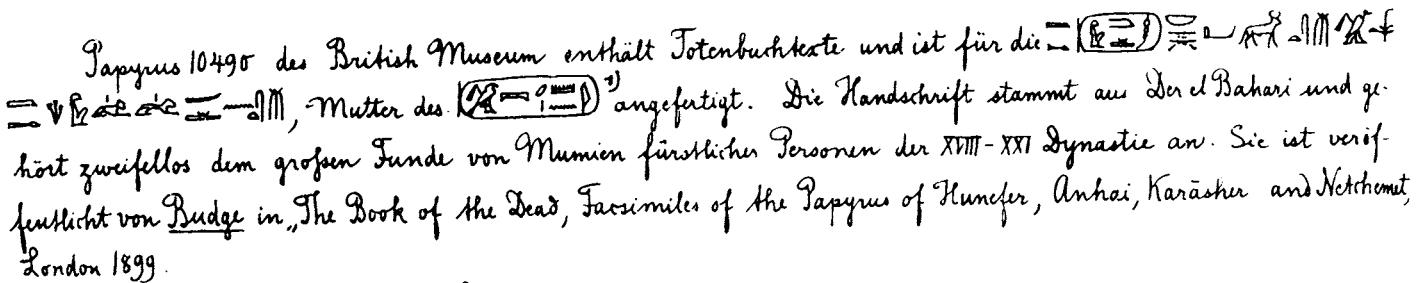 Papyrus 10490 des British Museum enthält Totenbuchtexte und ist für die
, Mutter des ¹) angefertigt. Die Handschrift stammt aus Der el Bahari und ge-
hört zweifellos dem großen Funde von Mumien fürstlicher Personen der XVIII-XXI Dynastie an. Sie ist veröf-
fentlicht von Budge in „The Book of the Dead, Facsimiles of the Papyrus of Hunefer, Anhai, Karāsher and Netchemet,
London 1899.